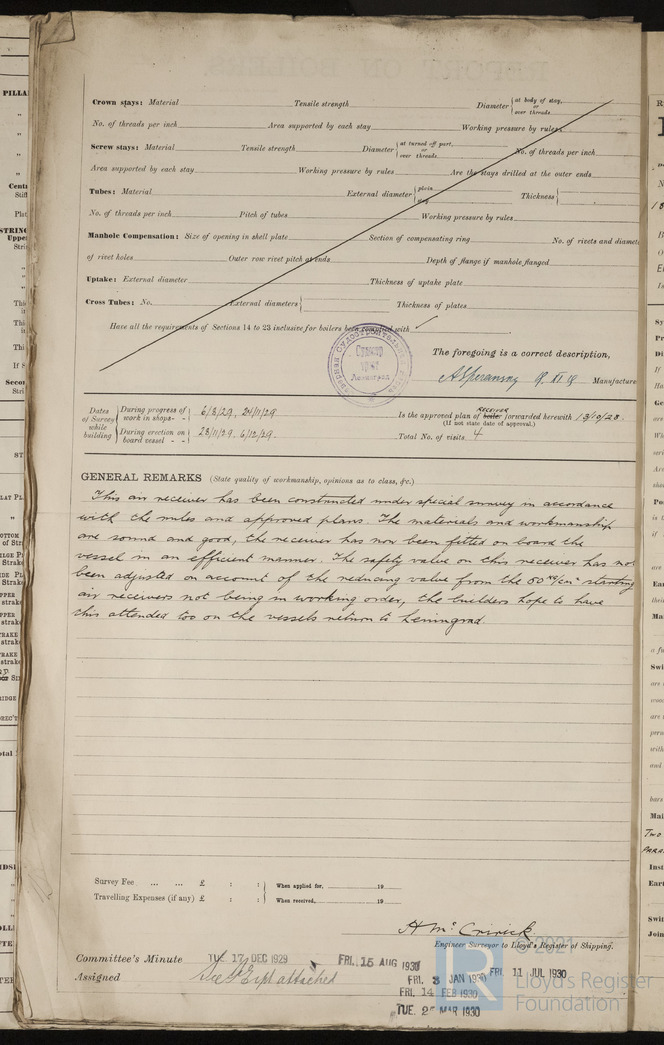 PILLA
Crown stays: Material Tensile strength Diameter at body of stay, or over threads
No. of threads per inch Area supported by each stay Working pressure by rules
Screw stays: Material Tensile strength Diameter at turned off part, or over threads No. of threads per inch
Area supported by each stay Working pressure by rules Are the stays drilled at the outer ends
Tubes: Material External diameter plain stay Thickness
No. of threads per inch Pitch of tubes Working pressure by rules
Manhole Compensation: Size of opening in shell plate Section of compensating ring No. of rivets and diamet
of rivet holes Outer row rivet pitch at ends Depth of flange if manhole flanged
Uptake: External diameter Thickness of uptake plate
Cross Tubes: No. External diameters Thickness of plates
Have all the requirements of Sections 14 to 23 inclusive for boilers been complied with ✓
The foregoing is a correct description,
Manufacture
Dates of Survey while building
During progress of work in shops - - 6/8/29, 24/11/29
During erection on board vessel - - 28/11/29, 6/12/29.
Is the approved plan of boiler RECEIVER forwarded herewith 13/10/28.
(If not state date of approval.)
Total No. of visits 4
GENERAL REMARKS (State quality of workmanship, opinions as to class, &c.)
This air receiver has been constructed under special survey in accordance
with the rules and approved plans. The materials and workmanship
are sound and good, the receiver has now been fitted on board the
vessel in an efficient manner. The safety valve on this receiver has not
been adjusted on account of the reducing valve from the 50 kg/cm² starting
air receivers not being in working order, the builders hope to have
this attended too on the vessels return to Leningrad.
Survey Fee ... ... £ : : When applied for, 19
Travelling Expenses (if any) £ : : When received, 19
Engineer Surveyor to Lloyd's Register of Shipping.
Committee's Minute TUE. 17 DEC 1929 FRI. 15 AUG 1930
Assigned attached
FRI. 3 JAN 1930 FRI. 11 JUL 1930
FRI. 14 FEB 1930
TUE. 25 MAR 1930
© 2021
LR
Lloyd's Register
Foundation